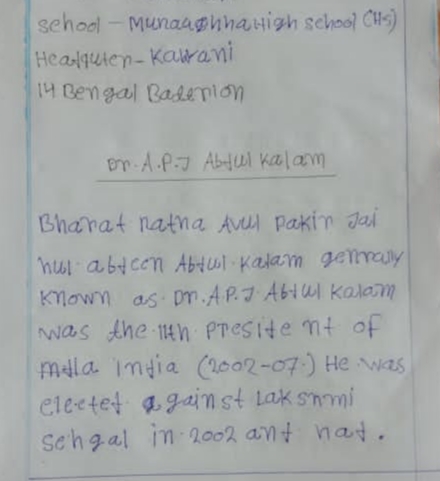 school - Munaaghha High school (HS)
Headquter - Kalrani
14 Bengal Badenlon
Dr. A.P.J Abdul Kalam
Bharat ratna Avul pakir Jai
nul abdeen Abdul Kalam gernraly
known as Dr. A.P.J Abdul Kalam
was the 11th president of
mdla India (2002-07.) He was
elected against Lakshmi
Sehgal in 2002 and hat.